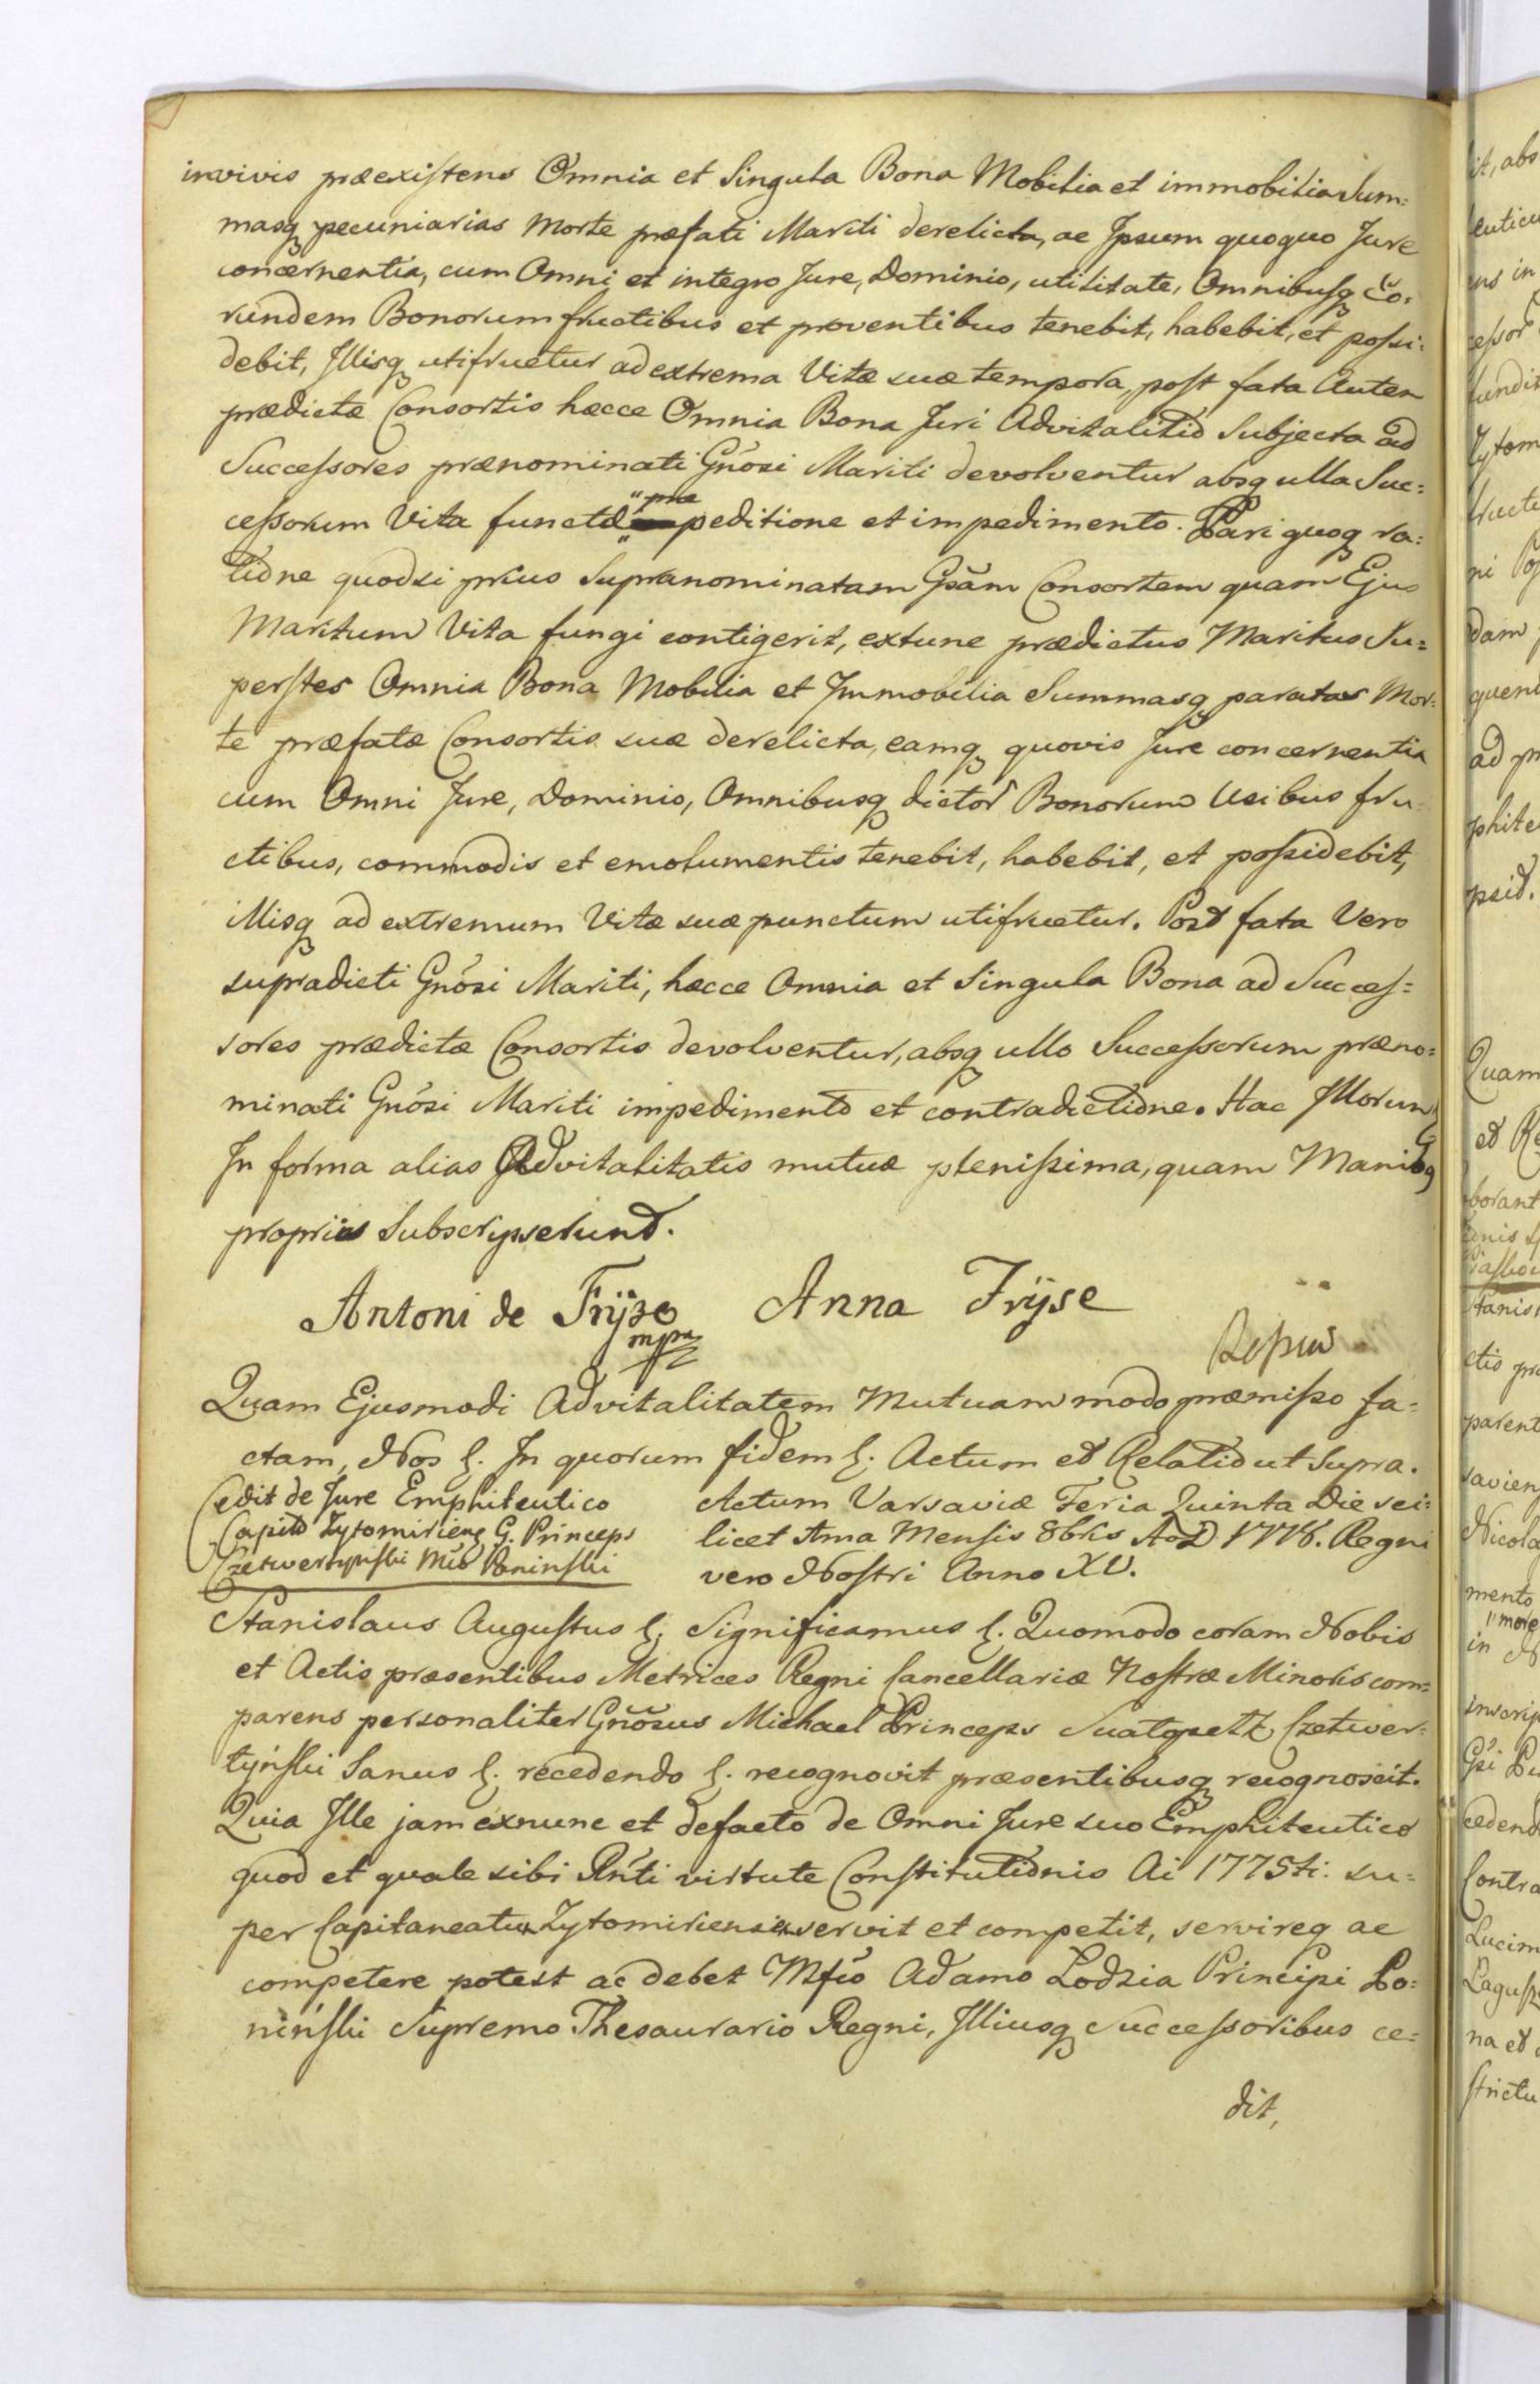 invivis præexistens Omnia et Singula Bona Mobilia et immobilia Sum:
masq pecuniarias Morte præfati Mariti derelicta, ac Ipsum quoquo Jure
concernentia, cum Omni et integro Jure, Dominio, utilitate, Omnibusq Eo:
rundem Bonorum fructibus et proventibus tenebit, habebit, et possi:
debit, Illisq utifruetur ad extrema Vitæ suæ tempora, post fata Autem
prædictæ Consortis hæcce Omnia Bona Juri Advitalitio Subjecta ad
Successores prænominati Gnosi Mariti devolventur absq ulla Suc:
cessorum Vita functæ præpeditione et impedimento. Pari quoq ra:
tione quodsi prius Supranominatam Gsãm Consortem quam Ejus
Maritum Vita fungi contigerit, extunc prædictus Maritus Su=
perstes Omnia Bona Mobilia et Immobilia Summasq paratas Mor:
te præfatæ Consortis suæ derelicta, eamq quovis Jure concernentia
cum Omni Jure, Dominio, Omnibusq dictor Bonorum Usibus fru:
ctibus, commodis et emolumentis tenebit, habebit, et possidebit,
illisq ad extremum Vitæ suæ punctum utifruetur. Post fata Vero
supradicti Gnosi Mariti, hæcce Omnia et Singula Bona ad Succes=
sores prædictæ Consortis devolventur, absq ullo Successorum præno=
minati Gnosi Mariti impedimento et contradictione. Hac Illorum
In forma alias Advitalitatis mutuæ plenissima, quam Manibq
propriis Subscrypserunt.
Antoni de Frÿze Anna Frÿse
mpra
Quam Ejusmodi Advitalitatem Mutuam modo præmisso fa=
ctam, Nos &. In quorum fidem &. Actum et Relatio ut Supra.
Cedit de Jure Emphiteutico
Capitō Zytomirieng G. Princeps
Czetwertynski Mčo Poninski
Actum Varsaviæ Feria Quinta Die sci:
licet 1ma Mensis 8bris AoD 1778. Regni
vero Nostri Anno XV.
Stanislaus Augustus &. Significamus &. Quomodo coram Nobis
et Actis præsentibus Metrices Regni Cancellariæ Nostræ Minoris com=
parens personaliter Gnõsus Michael Princeps Swatopelk Czetwer:
tyński Sanus &. recedendo &. recognovit præsentibusq recognoscit.
Quia Ille jam exnunc et defacto de Omni Jure suo Emphiteutico
quod et quale sibi Rñti virtute Constitutionis Ai 1775ti: su=
per Capitaneatu Zytomiriensi servit et competit, servireq ac
competere potest ac debet Mfčo Adamo Lodzia Principi Po:
niński Supremo Thesaurario Regni, Illiusq Successoribus ce=
dit,